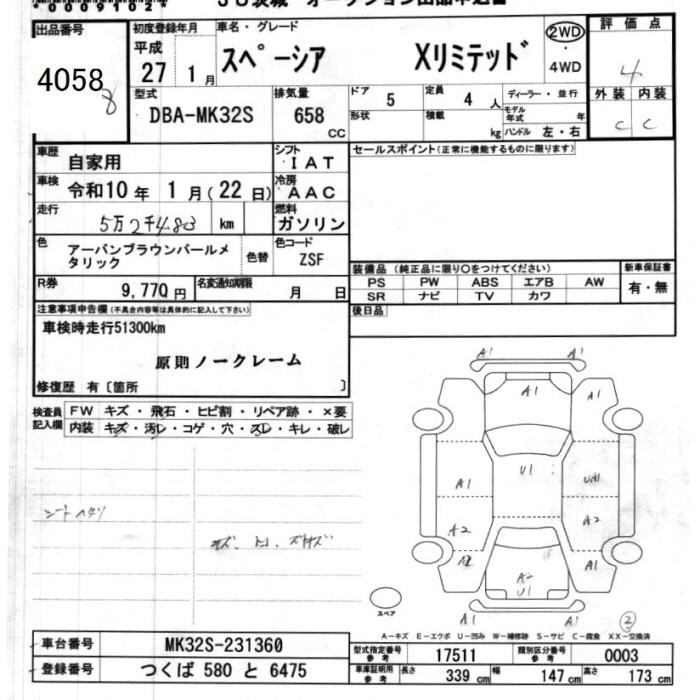 *00091020*
JU茨城 オークション出品申込書
出品番号
4058
8
初度登録年月
平成
27 1月
車名・グレード
スペーシア Xリミテッド
2WD
・
4WD
評価点
4
外装 内装
C C
型式
DBA-MK32S
排気量
658
CC
ドア
5
定員
4 人
形状
積載
kg
ディーラー・並行
モデル年式 年
ハンドル 左・右
車歴
自家用
シフト
IAT
セールスポイント(正常に機能するものに限ります)
車検
令和10年 1月(22日)
冷房
AAC
走行
5万2千483 km
燃料
ガソリン
色
アーバンブラウンパールメタリック
色替
色コード
ZSF
装備品(純正品に限り○をつけてください)
新車保証書
PS PW ABS エアB AW
SR ナビ TV カワ
有・無
R券
9,770円
名変通知期限
月 日
後日品
注意事項申告欄(不具合内容等は具体的に記入して下さい)
車検時走行51300km
原則ノークレーム
修復歴 有〔箇所 〕
検査員記入欄
FW キズ・飛石・ヒビ割・リペア跡・×要
内装 キズ・汚レ・コゲ・穴・スレ・キレ・破レ
シートヘタリ
A1 A1
A1 A1
U1
A1
A2 A2
A2 A1
A2
U1
A1 A1
スペア
2
A-キズ E-エクボ U-凹み W-補修跡 S-サビ C-腐食 XX-交換済
車台番号 MK32S-231360
登録番号 つくば 580 と 6475
型式指定番号 参考 17511
類別区分番号 参考 0003
車庫証明用 参考 長さ 339 cm 幅 147 cm 高さ 173 cm